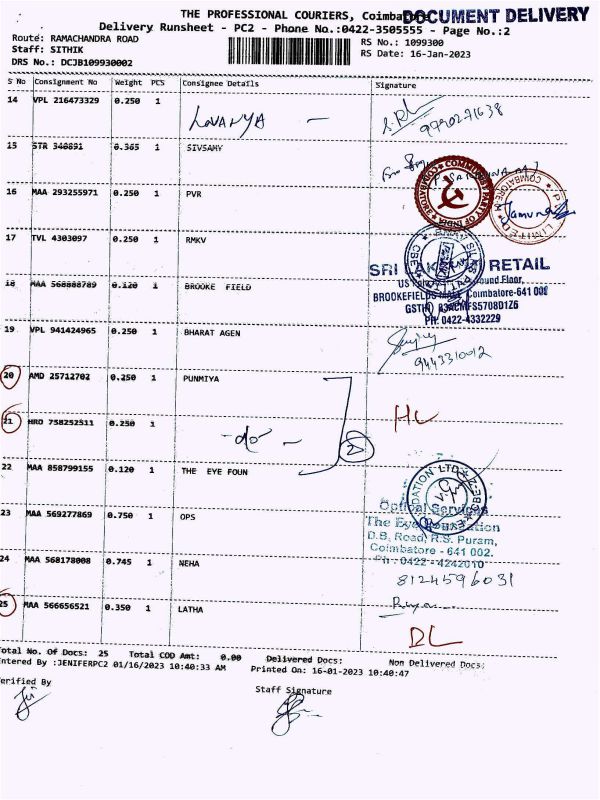 THE PROFESSIONAL COURIERS, Coimbatore
DOCUMENT DELIVERY
Delivery Runsheet - PC2 - Phone No.:0422-3505555 - Page No.:2
Route: RAMACHANDRA ROAD
RS No.: 1099300
Staff: SITHIK
RS Date: 16-Jan-2023
DRS No.: DCJB109930002
S No Consignment No Weight PCS Consignee Details Signature
14 VPL 216473329 0.250 1 LAVANYA -
15 STR 340891 0.365 1 SIVSAMY
16 MAA 293255971 0.250 1 PVR
COMMUNIST PARTY OF INDIA
COIMBATORE
LIMITED
Jamuna
17 TVL 4303097 0.250 1 RMKV
SRI RETAIL
Ground Floor,
18 MAA 568888789 0.120 1 BROOKE FIELD
BROOKEFIELDS Coimbatore-641 001
PH: 0422-4332229
19 VPL 941424965 0.250 1 BHARAT AGEN
9443310012
20 AMD 25712702 0.250 1 PUNMIYA
21 HRO 758252511 0.250 1 -do- 2
HL
22 MAA 858799155 0.120 1 THE EYE FOUN
Optical Services
The Eye Foundation
23 MAA 569277869 0.750 1 OPS
D.B. Road, R.S. Puram,
Coimbatore - 641 002.
Ph : 0422 - 4242010
24 MAA 568178008 0.745 1 NEHA
8124596031
25 MAA 566656521 0.350 1 LATHA
DL
Total No. Of Docs: 25 Total COD Amt: 0.00 Delivered Docs: Non Delivered Docs:
Entered By :JENIFERPC2 01/16/2023 10:40:33 AM Printed On: 16-01-2023 10:40:47
Verified By
Staff Signature